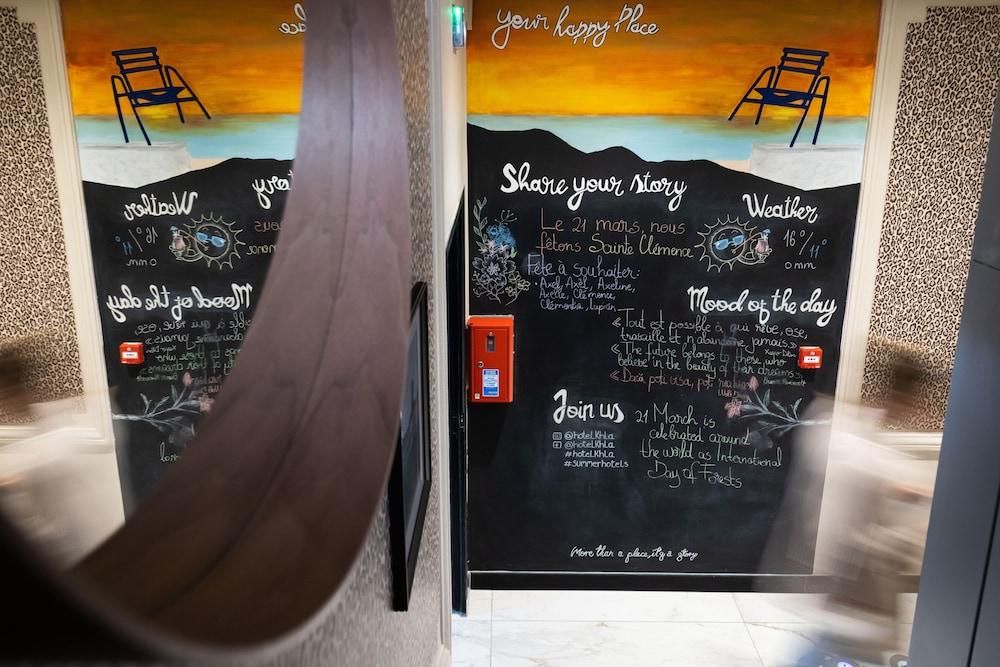 your happy Place
Share your story
Le 21 mars, nous
fêtons Sainte Clémence
Fête à souhaiter:
• Axel, Axel, Axeline,
Axelle, Clémence,
Clémentia, Lupin
Weather
16°/11°
0 mm
Mood of the day
« Tout est possible à qui rêve, ose,
travaille et n'abandonne jamais »
« The future belongs to those who
believe in the beauty of their dreams »
« Dacă poti visa, poti
Join us
@hotelKhla
@hotelKhla
#hotelKhla
#summerhotels
21 March is
celebrated around
the world as International
Day of Forests
More than a place, it's a story